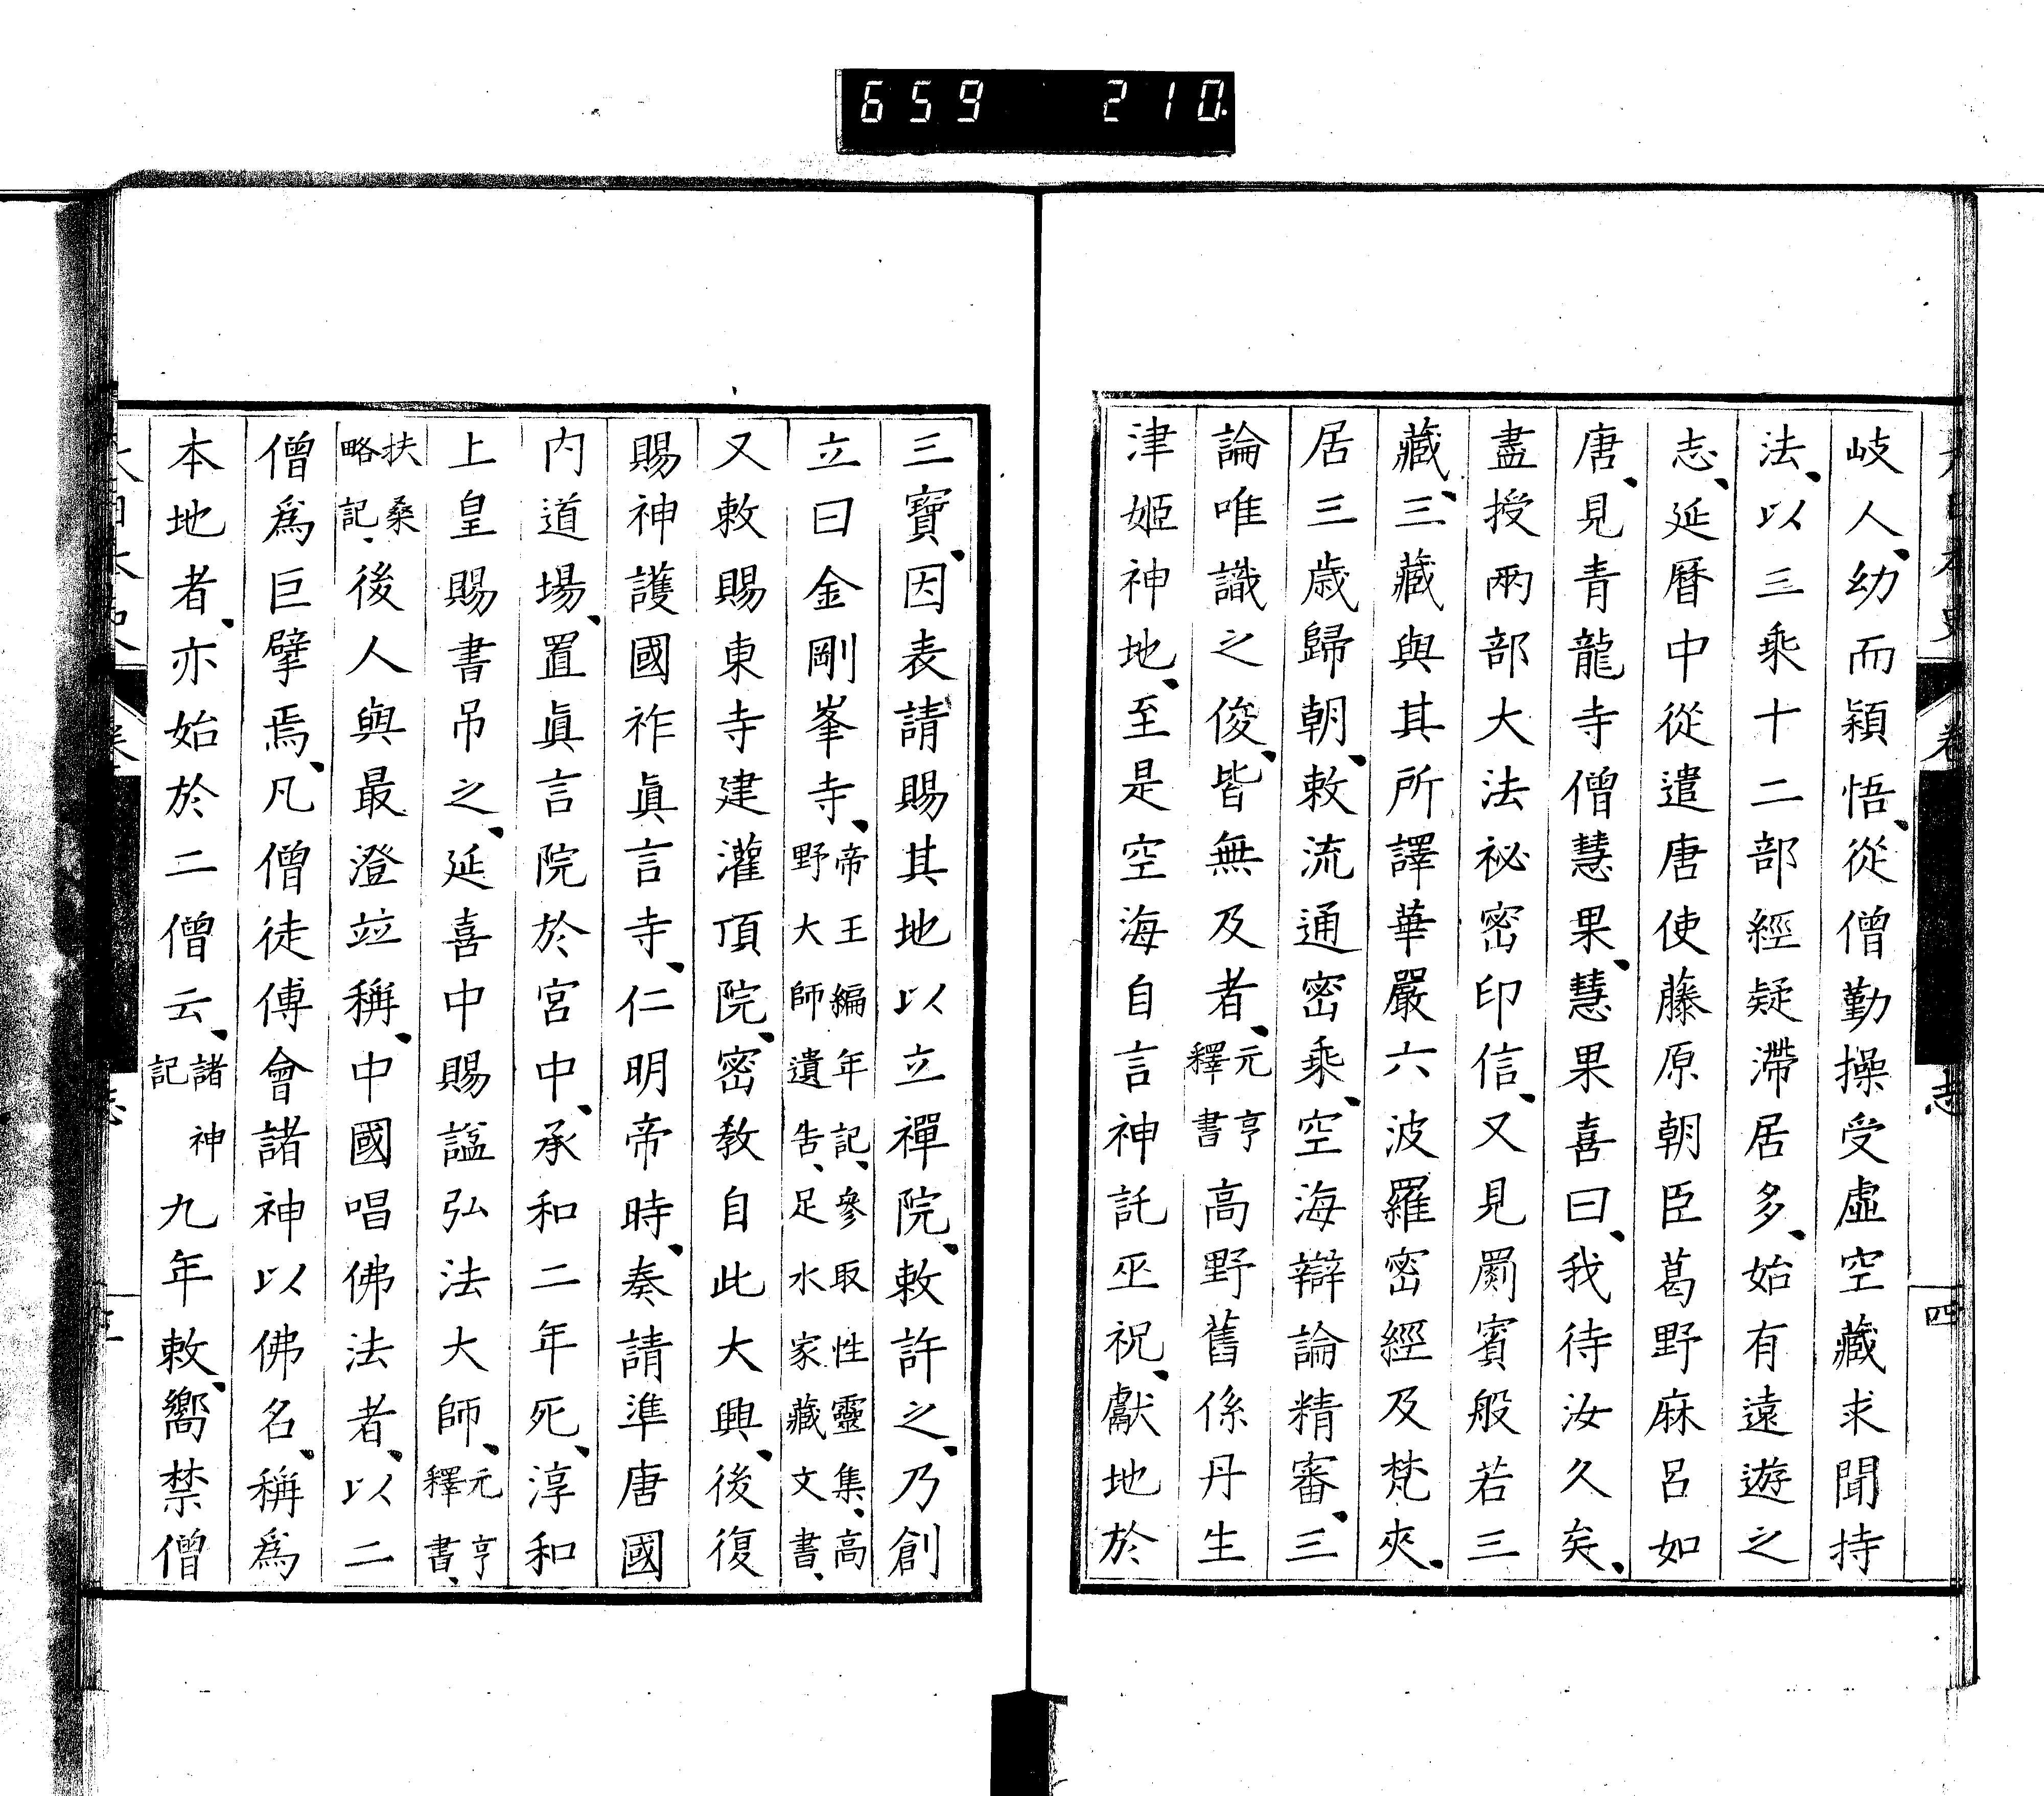 659 210
岐人、幼而穎悟、從僧勤操受虛空藏求聞持
法、以三乘十二部經疑滯居多、始有遠遊之
志、延曆中從遣唐使藤原朝臣葛野麻呂如
唐、見青龍寺僧慧果、慧果喜曰、我待汝久矣、
盡授兩部大法祕密印信、又見罽賓般若三
藏、三藏與其所譯華嚴六波羅密經及梵夾、
居三歲歸朝、敕流通密乘、空海辯論精審、三
論唯識之俊、皆無及者、元亨釋書高野舊係丹生
津姬神地、至是空海自言神託巫祝、獻地於
卷
志
四
三寶、因表請賜其地以立禪院、敕許之、乃創
立曰金剛峯寺、帝王編年記、參取性靈集、高野大師遺告、足水家藏文書、
又敕賜東寺建灌頂院、密教自此大興、後復
賜神護國祚眞言寺、仁明帝時、奏請準唐國
內道場、置眞言院於宮中、承和二年死、淳和
上皇賜書吊之、延喜中賜諡弘法大師、元亨釋書、
扶桑略記、後人與最澄竝稱、中國唱佛法者、以二
僧爲巨擘焉、凡僧徒傅會諸神以佛名、稱爲
本地者、亦始於二僧云、諸神記九年敕、嚮禁僧